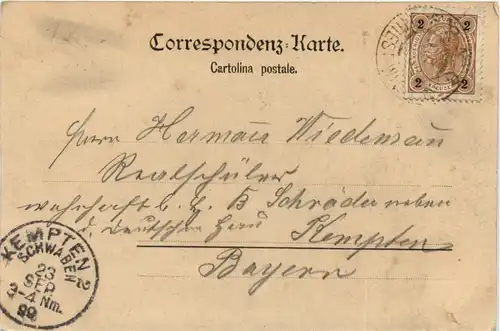 Correspondenz-Karte.
Cartolina postale.
2 2
2 2
Herrn Hermann Wiedemann
Realschüler
wohnhaft b. H. Schröder neben
d. Deutschen Haus Kempten
Bayern
KEMPTEN 2
SCHWABEN
23
SEP
3-4 Nm.
99